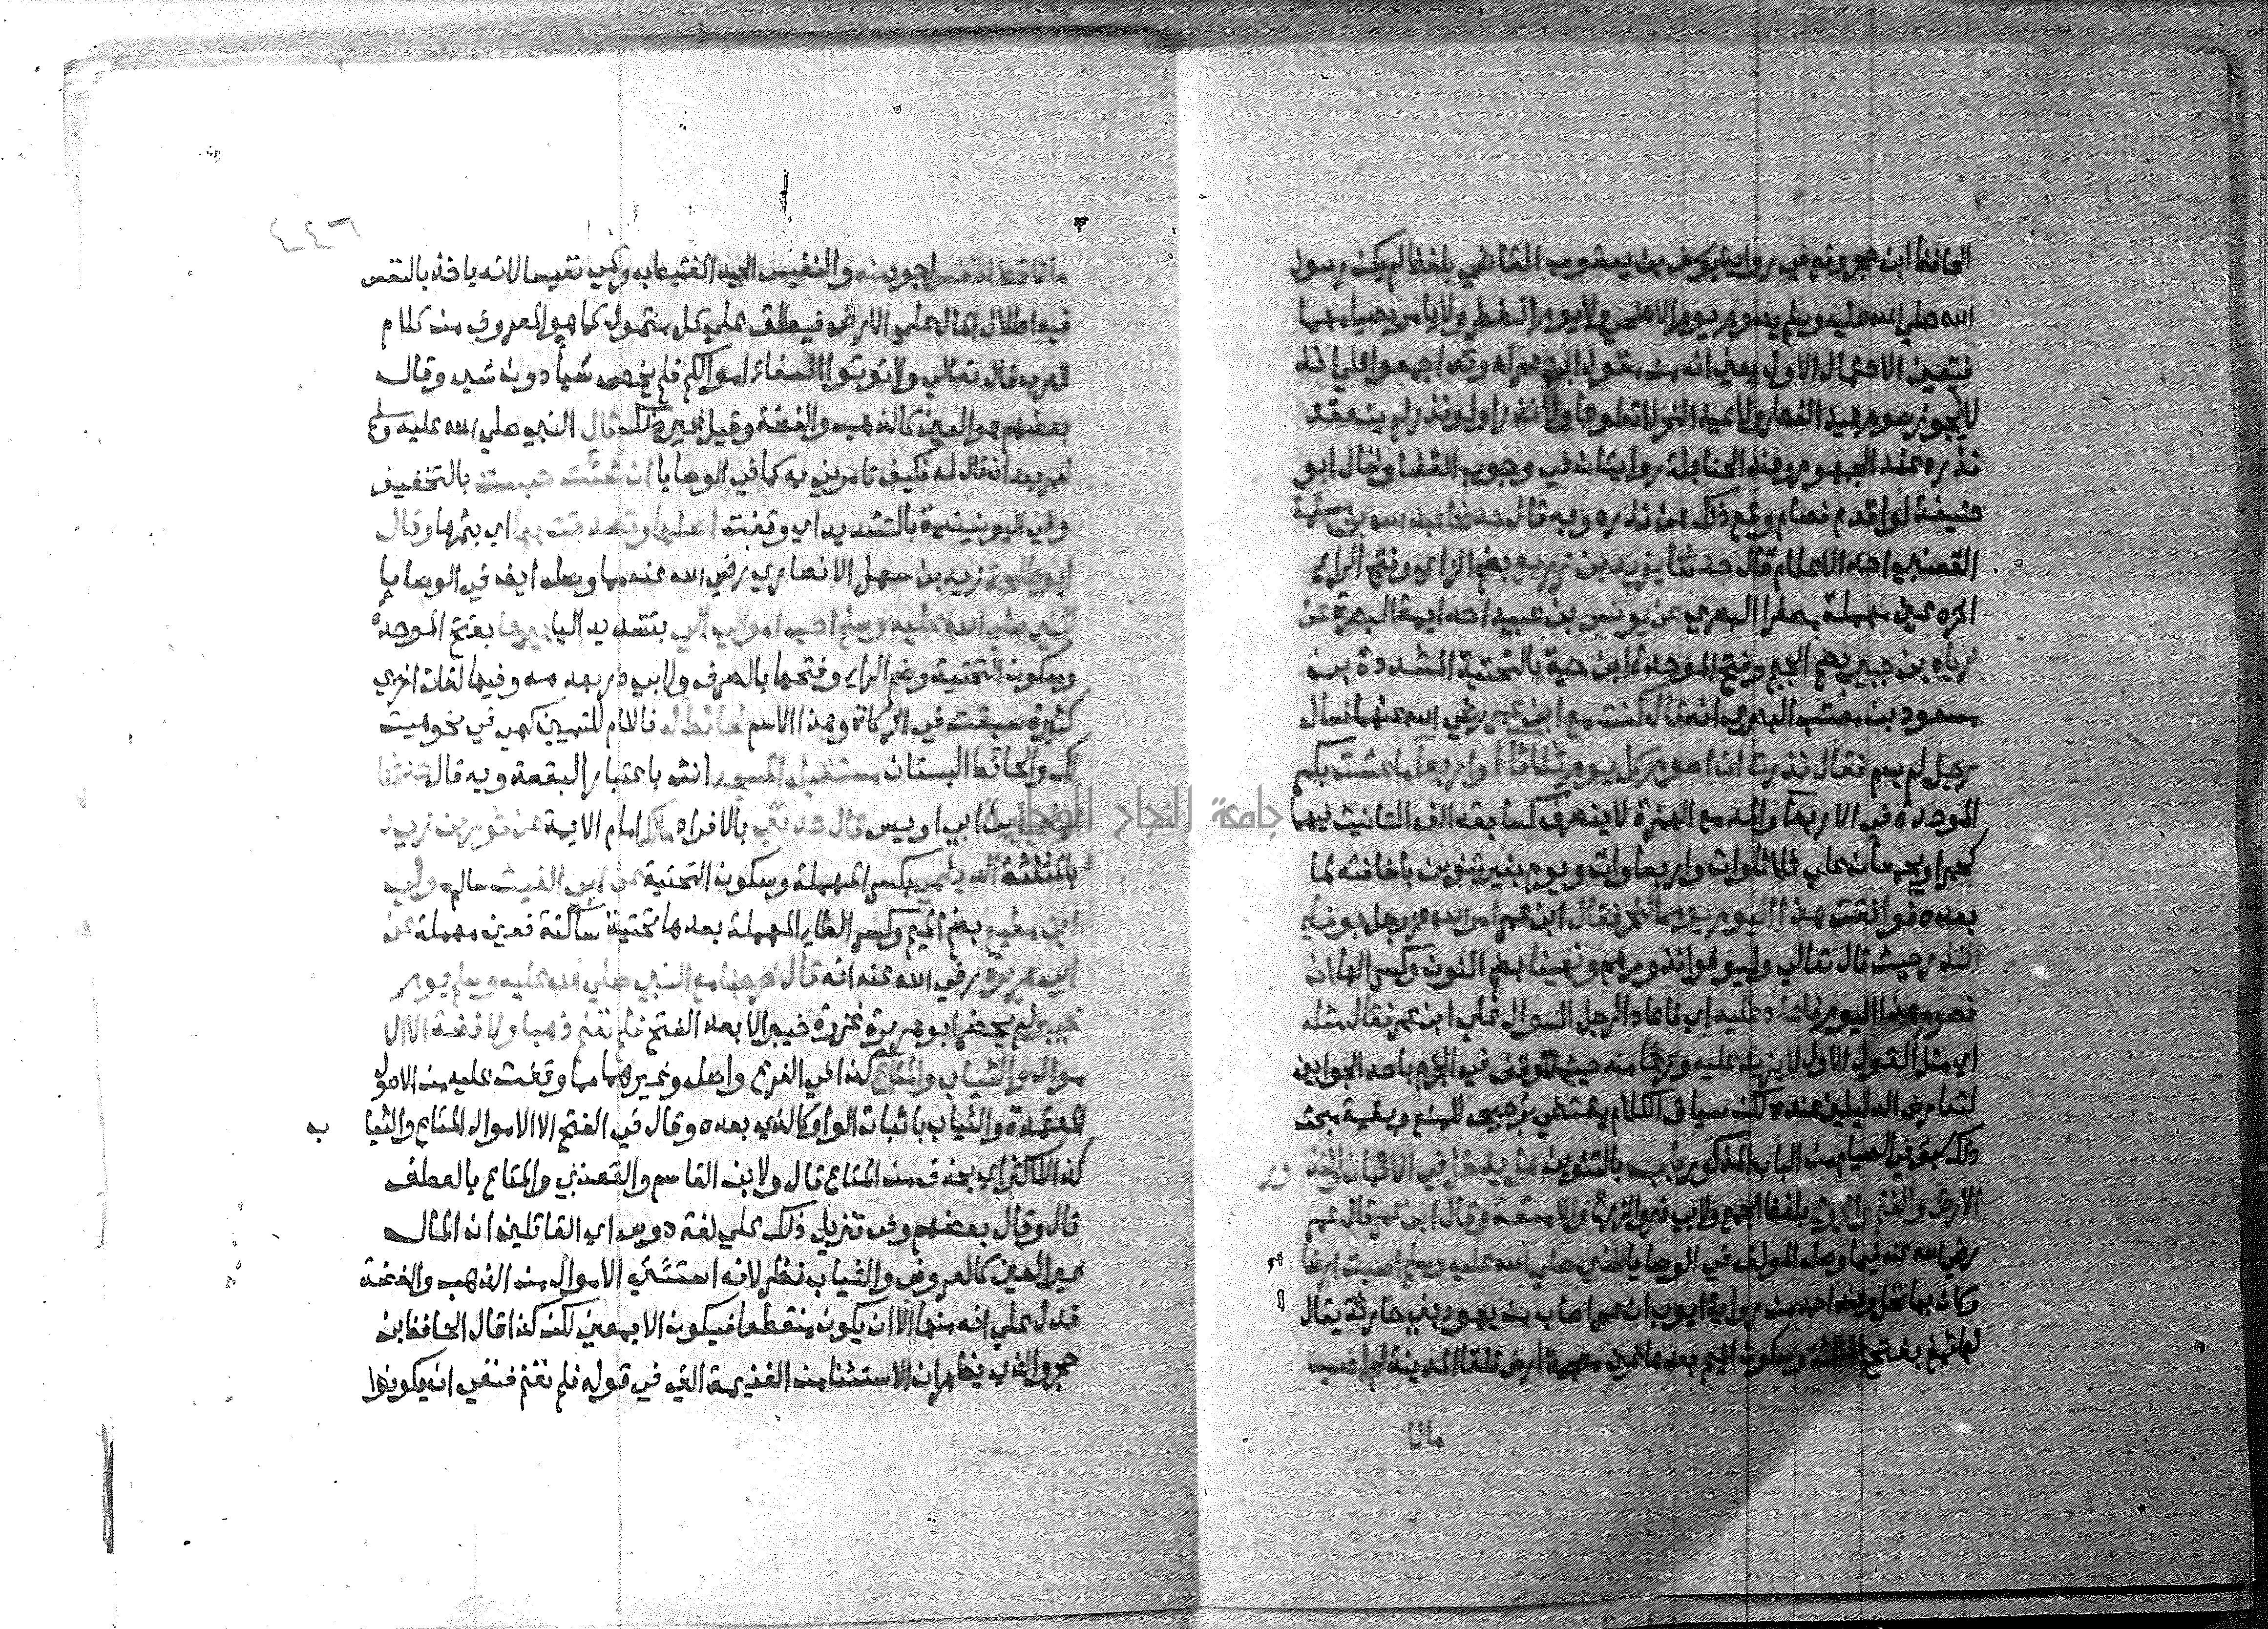 الحافظ ابن حجر وقع في رواية يوسف بن يعقوب القاضي بلفظ لم يكن رسول
الله صلي الله عليه وسلم يصوم يوم الاضحي ولا يوم الفطر ولا يامر بصيامهما
فتعين الاحتمال الاول يعني انه من مقول ابن عمر اه وقد اجمعوا علي انه
لا يجوز صوم عيد الفطر ولا عيد النحر لا تطوعا ولا نذرا ولو نذر لم ينعقد
نذره عند الجمهور وعند الحنابلة روايتان في وجوب القضا وقال ابو
حنيفة لو اقدم فصام وقع ذلك عن نذره وبه قال حدثنا عبد الله بن مسلمة
القعنبي احد الاعلام قال حدثنا يزيد بن زريع بضم الزاي وفتح الراي
اخره عين مهملة مصغرا البصري عن يونس بن عبيد احد ايمة البصرة عن
زياد بن جبير بضم الجيم وفتح الموحدة ابن حية بالتحتية المشددة بن
مسعود بن معتب البصري انه قال كنت مع ابن عمر رضي الله عنهما فسال
رجل لم يسم فقال نذرت ان اصوم كل يوم ثلاثا او اربعا ما عشت بكسر
الموحدة في الاربعا والمد مع الهمزة لا ينصرف كسابقه الف التانيث فيهما
كحمرا ويجمعان علي ثلاثاوات واربعاوات ويوم بغير تنوين باضافته لما
بعده فوافقت هذا اليوم يوم النحر فقال ابن عمر امر الله عز وجل بوفاء
النذر حيث قال تعالي وليوفوا نذورهم ونهينا بضم النون وكسر الها ان
نصوم هذا اليوم فاعاد عليه اي فاعاد الرجل السوال علي ابن عمر فقال مثله
اي مثل القول الاول لا يزيد عليه ورعا منه حيث توقف في الجزم باحد الجوابين
لتعارض الدليلين عنده لكن سياق الكلام يقتضي ترجيح المنع وبقية مبحث
ذلك سبق في الصيام من الباب المذكور باب بالتنوين هل يدخل في الايمان والنذ ور
الارض والغنم والزروع بلفظ الجمع ولابي ذر والزرع والامتعة وقال ابن عمر قال عمر
رضي الله عنه فيما وصله المولف في الوصايا للنبي صلي الله عليه وسلم اصبت ارضا
وكان بها نخل وعند احمد من رواية ايوب ان عمر اصاب من يهود بني حارثة يقال
لها ثمغ بفتح المثلثة وسكون الميم بعدها غين معجمة ارض تلقا المدينة لم اصب
مالا
٢٤٤٦
مالا قط انفس اجود منه والنفيس الجيد المغتبط به وسمي نفيسا لانه ياخذ بالنفس
فيه اطلاق المال علي الارض فيطلق علي كل متمول كما هو المعروف من كلام
العرب قال تعالي ولا توتوا السفهاء اموالكم فلم يخص شيأ دون شي وقال
بعضهم هو العين كالذهب والفضة وقيل غير ذلك قال النبي صلي الله عليه وسلم
لعمر بعد ان قال له فكيف تامرني به كما في الوصايا ان شئت حبست بالتخفيف
وفي اليونينية بالتشديد اي وقفت اصلها وتصدقت بها اي بثمرها وقال
ابو طلحة زيد بن سهل الانصاري رضي الله عنه مما وصله ايضا في الوصايا
للنبي صلي الله عليه وسلم احب اموالي الي بتشديد اليا بيرحا بفتح الموحدة
وسكون التحتية وضم الراء وفتحها بالصرف ولابي ذر بعدمه وفيها لغات اخري
كثيرة سبقت في الزكاة وهذا الاسم لحائط له فاللام للتبيين كهي في نحو هيت
لك والحائط البستان مستقبلة المسجد انث باعتبار البقعة وبه قال حدثنا
اسماعيل بن ابي اويس قال حدثني بالافراد مالك امام الايمة عن ثور بن زيد
بالمثلثة الديلي بكسر المهملة وسكون التحتية عن ابي الغيث سالم مولي
ابن مطيع بضم الميم وكسر الطاء المهملة بعدها تحتية ساكنة فعين مهملة عن
ابي هريرة رضي الله عنه انه قال خرجنا مع النبي صلي الله عليه وسلم يوم
خيبر لم يحضر ابو هريرة غزوة خيبر الا بعد الفتح فلم نغنم ذهبا ولا فضة الا الا
موال والثياب والمتاع كذا في الفرع واصله وغيرهما مما وقفت عليه من الاصول
المعتمدة والثياب باثبات الواو كالذي بعده وقال في الفتح الا الاموال المتاع والثيا ب
كذا للاكثر اي بحذف من المتاع قال ولابن القاسم والقعنبي والمتاع بالعطف
قال وقال بعضهم وفي تنزيل ذلك علي لغة دوس اي القائلين ان المال
غير العين كالعروض والثياب نظر لانه استثني الاموال من الذهب والفضة
فدل علي انه منها الا ان يكون منقطعا فيكون الا بمعني لكن كذا قال الحافظ ابن
حجر والذي يظهر ان الاستثنا من الغنيمة التي في قوله فلم نغنم فنفي ان يكونوا
جامعة النجاح الوطنية